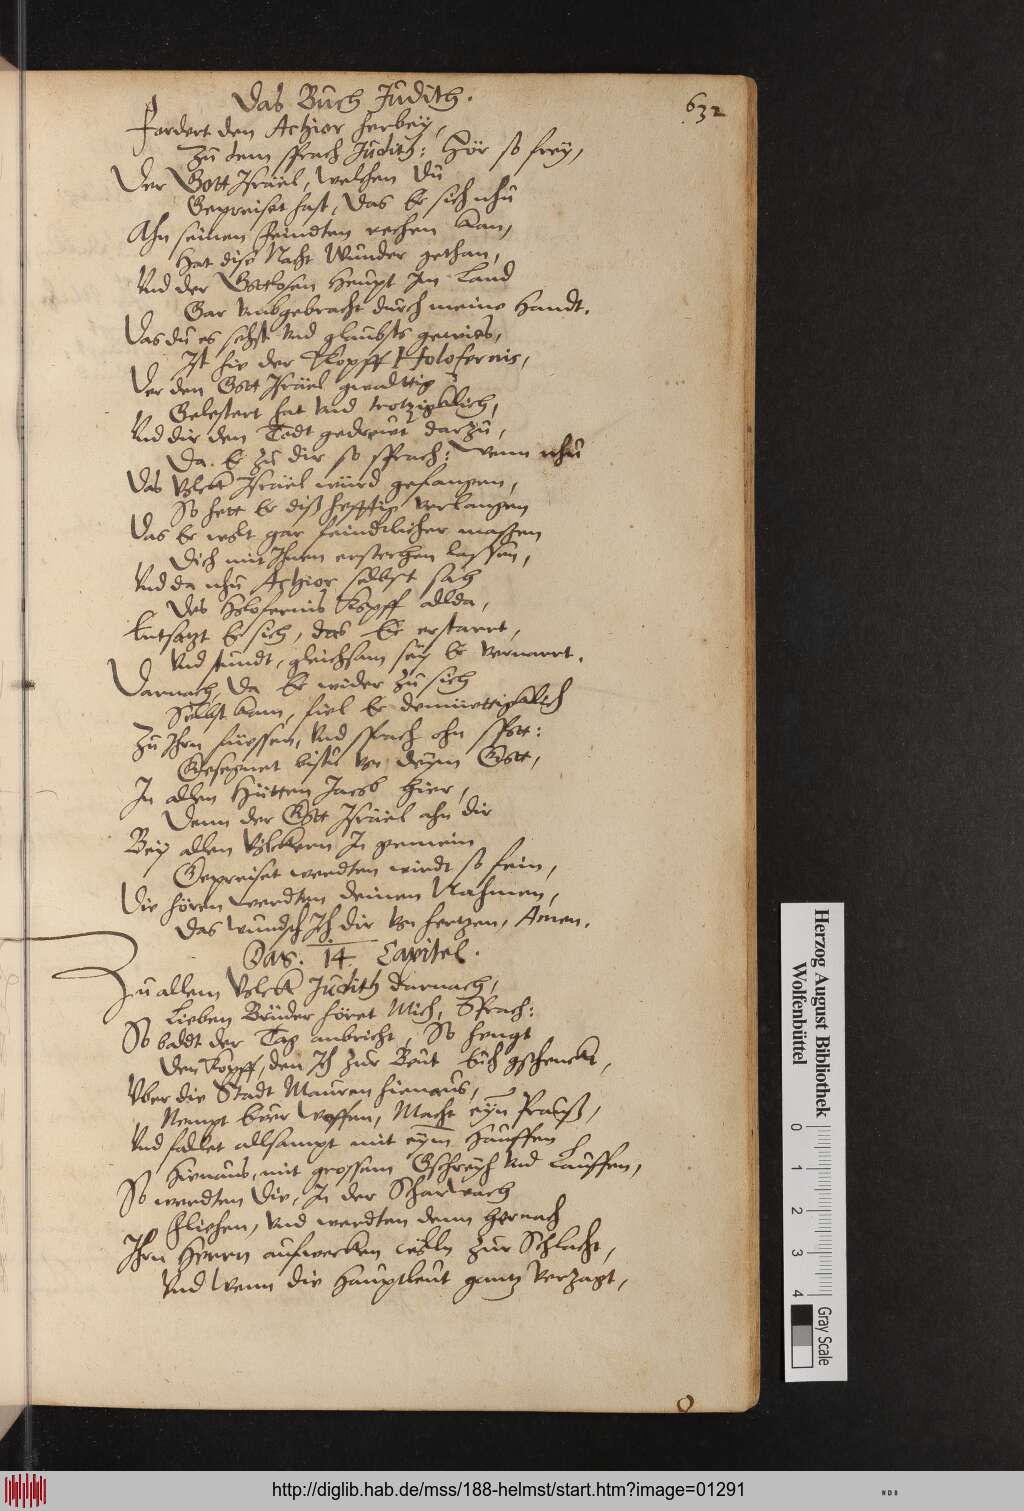 Das Buch Judith.
632
Fordert den Achior herbey,
Zu dem sprach Judith: Hör so frey,
Der Gott Israel, welchen du
Gepreiset hast, Das Er sich nhu
Ahn seinen feindten rechen kan,
Hat dise Nacht Wunder gethan,
Vnd der Gottlosen Heupt Im Land
Gar vmbgebracht durch meine Handt.
Das du es sehst vnd glaubsts gewies,
Ist hie der Kopff Holofernis,
Der den Gott Israel gwaltig
Gelestert hat vnd trotziglich,
Vnd dir den Todt gedreuwt darzu,
Da Er zu dir so sprach: Wenn nhu
Das Volck Israel würd gefangen,
So hett Er diß hefftig verlangen
Das Er wolt gar feindtlicher massen
Dich mit Ihnen erstechen lassen,
Vnd da nhu Achior selbst sah
Des Holofernis Kopff allda,
Entsatzt Er sich, das Er erstarrt,
Vnd stundt, gleichsam sey Er vernarrt.
Darnach, Da Er wider zu sich
Selbst kam, fiel Er demüettigklich
Zu Ihrn füessen, Vnd sprach ohn spott:
Gesegnet bistu vor deym Gott,
In allen Hütten Jacob hier,
Denn der Gott Israel ahn dir
Bey allen Völckern In gemein
Gepreiset werdten wirdt so fein,
Die hören werdten deinen Nahmen,
Das wundsch Ich dir von hertzen, Amen.
Das. 14 Capitel.
Zu allem Volck Judith darnach,
Lieben Brüder höret Mich, Sprach:
So baldt der Tag anbricht, So hengt
Den Kopff, den Ich zur Beut Euch gschenckt,
Vber die Stadt Mauren hienaus,
Nempt Ewer Waffen, Macht eyn Prauß,
Vnd fallet allsampt mit eym Hauffen
Hienaus, mit grossem Gschreyh vnd Lauffen,
So werdten Die, In der Scharwach
Fliehen, vnd werdten denn hernach
Ihrn Herrn aufwecken wölln zur Schlacht,
Vnd Wenn die Hauptleut gantz verzagt,
Herzog August Bibliothek
Wolfenbüttel
0 1 2 3 4
Gray Scale
http://diglib.hab.de/mss/188-helmst/start.htm?image=01291